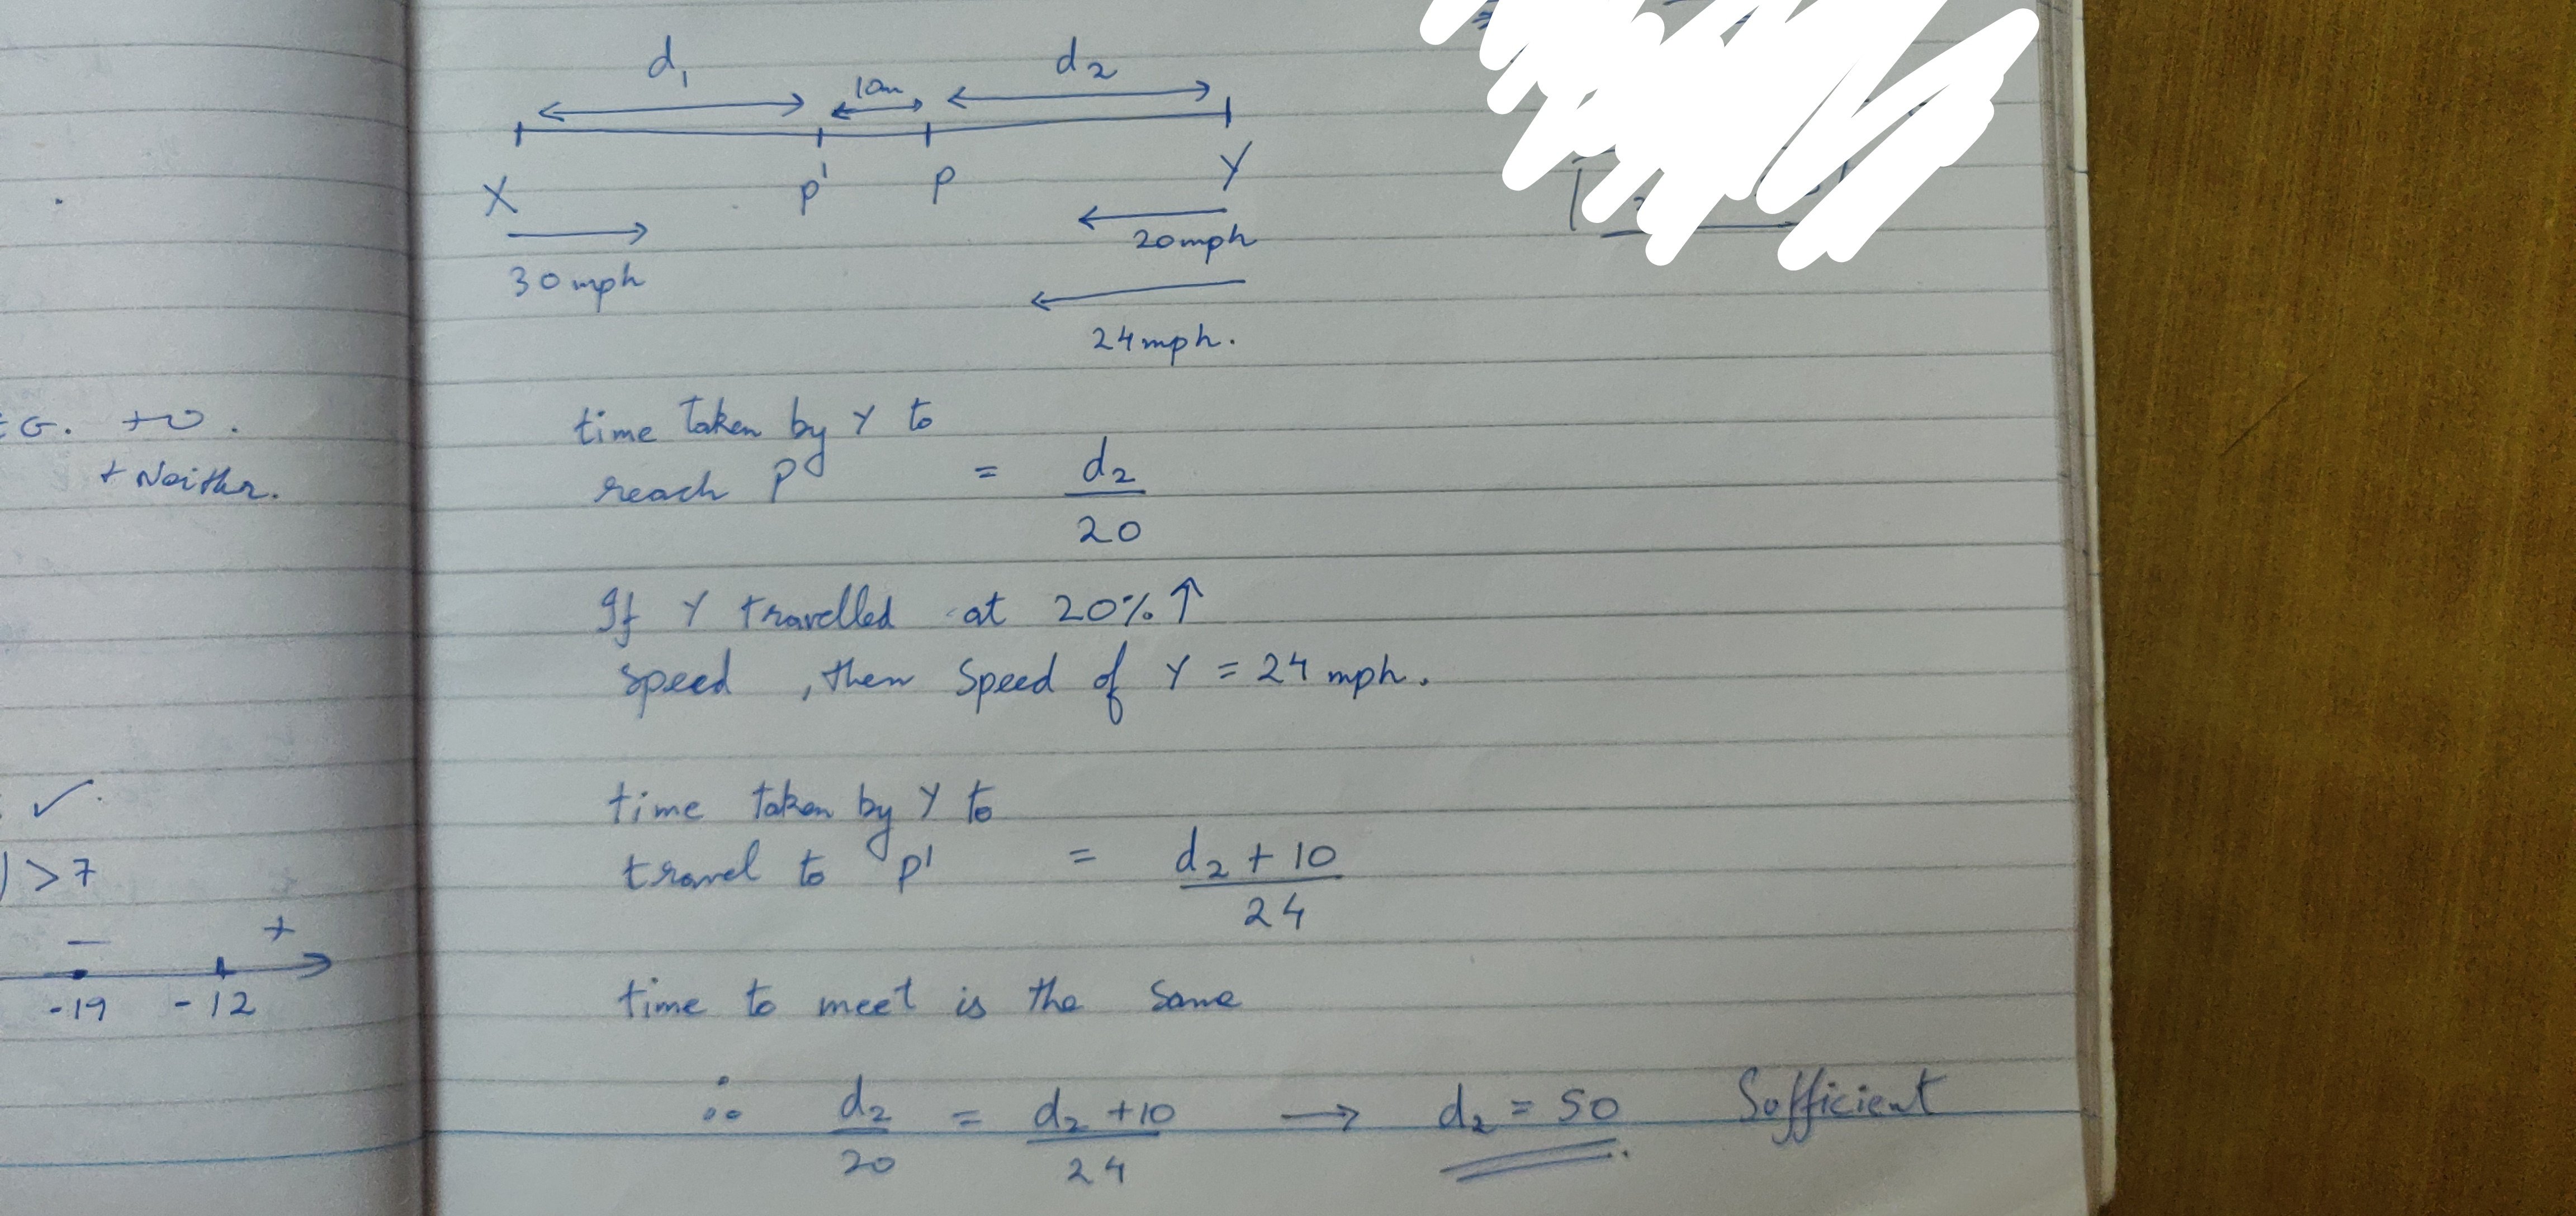 d₁ 10m d₂
X p' P Y
30mph 20mph
24mph.
time taken by Y to
reach P = d₂/20
If Y travelled at 20% ↑
speed, then speed of Y = 24 mph.
time taken by Y to
travel to p' = d₂ + 10/24
time to meet is the same
∴ d₂/20 = d₂ + 10/24 → d₂ = 50 Sufficient
+ Neither.
✓.
) > 7
− +
-19 -12